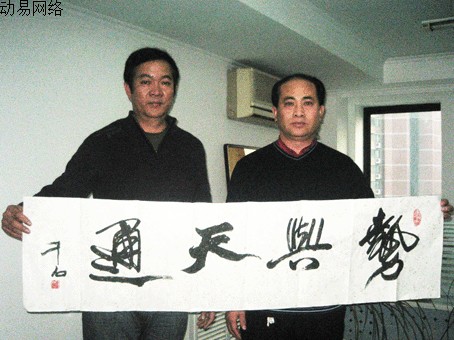 动易网络
勢與天通
千石